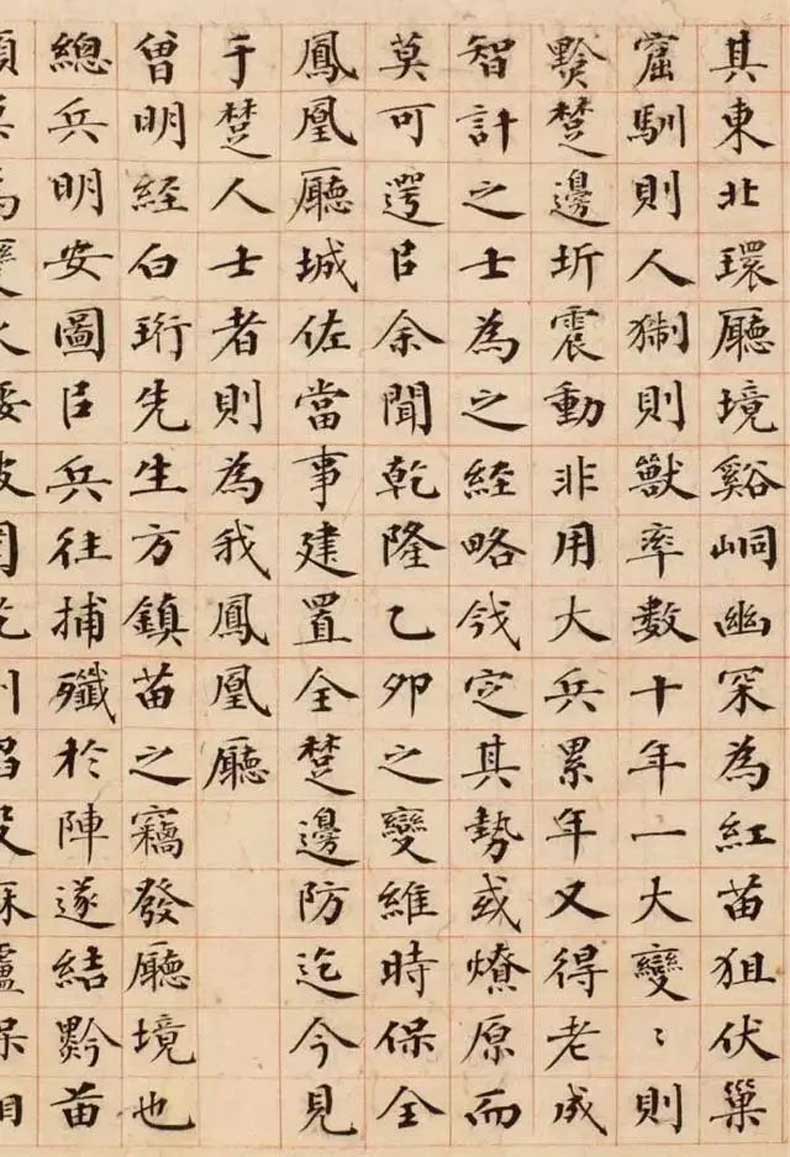 其東北環廳境谿峒幽罙為紅苗狙伏巢
窟馴則人猘則獸率數十年一大變〻則
黔楚邊圻震動非用大兵累年又得老成
智計之士為之經略戡定其勢或燎原而
莫可遌㠯余聞乾隆乙卯之變維時保全
鳳凰廳城佐當事建置全楚邊防迄今見
于楚人士者則為我鳳凰廳
曾明經白珩先生方鎮苗之竊發廳境也
總兵明安圖㠯兵往捕殲於陣遂結黔苗